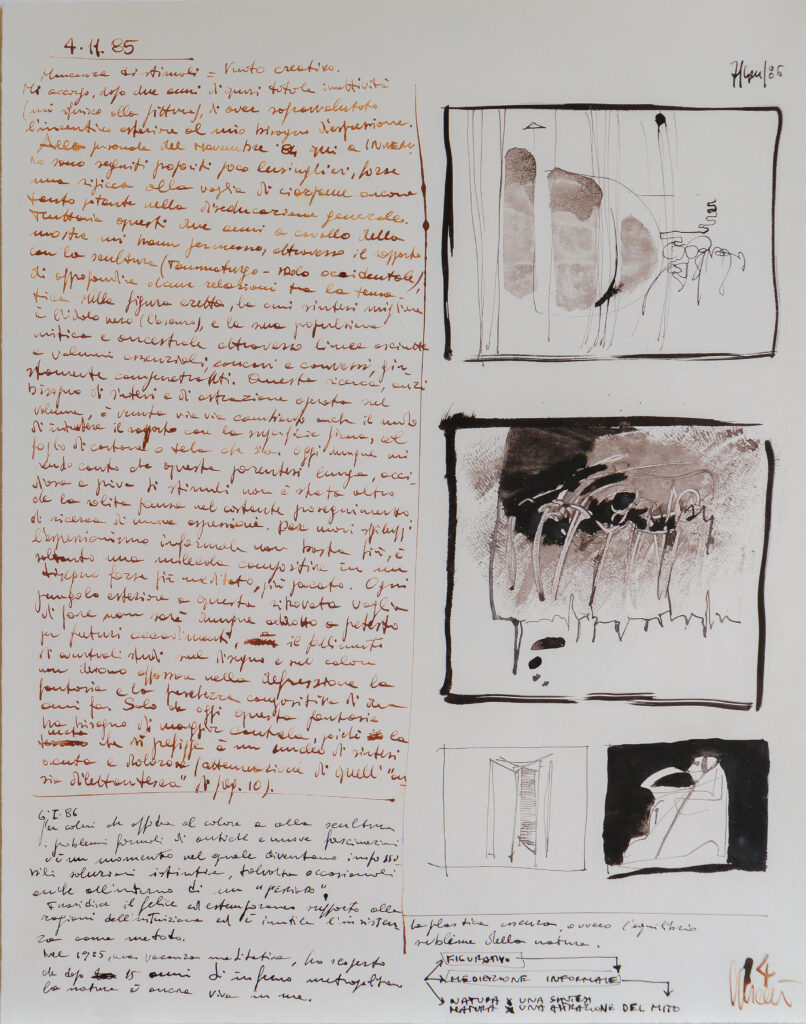 4.11.85
Mancanza di stimoli = Vuoto creativo.
Mi accorgo, dopo due anni di quasi totale inattività
(mi riferisco alla pittura), di aver sopravalutato
l'incentivo esteriore al mio bisogno d'espressione.
Alla personale del Novembre 84 qui a
no sono seguiti propositi poco lusinghieri, forse
una ripicca alla voglia di ciarpame ancora
tanto pitante nella diseducazione generale.
Tuttavia questi due anni a cavallo della
mostra mi hanno permesso, attraverso il rapporto
con la scultura (Taumaturgo - Idolo occidentale),
di approfondire alcune relazioni tra la tema-
tica della figura eretta, la cui sintesi migliore
è l'idolo nero (l'osceno), e la sua propulsione
mitica e ancestrale attraverso linee asciutte
e volumi essenziali, concavi e convessi, giu-
stamente compenetrati. Questa ricerca, anzi
bisogno di sintesi e di astrazione operata sul
volume, è venuta via via cambiando anche il modo
di intendere il rapporto con la superficie piana, col
foglio di cartone o tela che sia. Oggi dunque mi
rendo conto che questa parentesi lunga, acci-
diosa e priva di stimoli non è stata altro
che la solita pausa nel costante proseguimento
di ricerca di nuova espressione. Per nuovi sviluppi
l'espressionismo informale non basta più, è
soltanto una molecola compositiva in un
disegno forse più meditato, più pacato. Ogni
pungolo esteriore a questa ritrovata voglia
di fare non sarà dunque addotto a pretesto
per futuri accadimenti, il fallimento
di eventuali studi sul disegno e sul colore
non devono affossare nella depressione la
fantasia e la freschezza compositiva di
anni fa. Solo che oggi questa fantasia
ha bisogno di maggior cautela, poiché la
meta che si prefigge è un nucleo di sintesi
scarna e dolorosa (attenuazione di quell'
dilettantesca" di pag. 10).
6.I.86
Per coloro che offrono al colore e alla scultura
i problemi formali di antiche e nuove fascinazioni
c'è un momento nel quale diventano imposs
bili soluzioni istintive, talvolta occasionali
anche all'interno di un "periodo".
il felice ed estemporaneo rapporto alle
ragioni dell'intuizione ed è inutile l'insisten
za come metodo.
Nel 1985, una vacanza meditativa, ho scoperto
che dopo 15 anni di inferno metropolitano
la natura è ancora viva in me.
La plastica essenza, ovvero l'equilibrio
sublime della natura.
FIGURATIVO
MEDIAZIONE INFORMALE
NATURA X UNA SINTESI
NATURA X UNA ASTRAZIONE DEL MITO
14